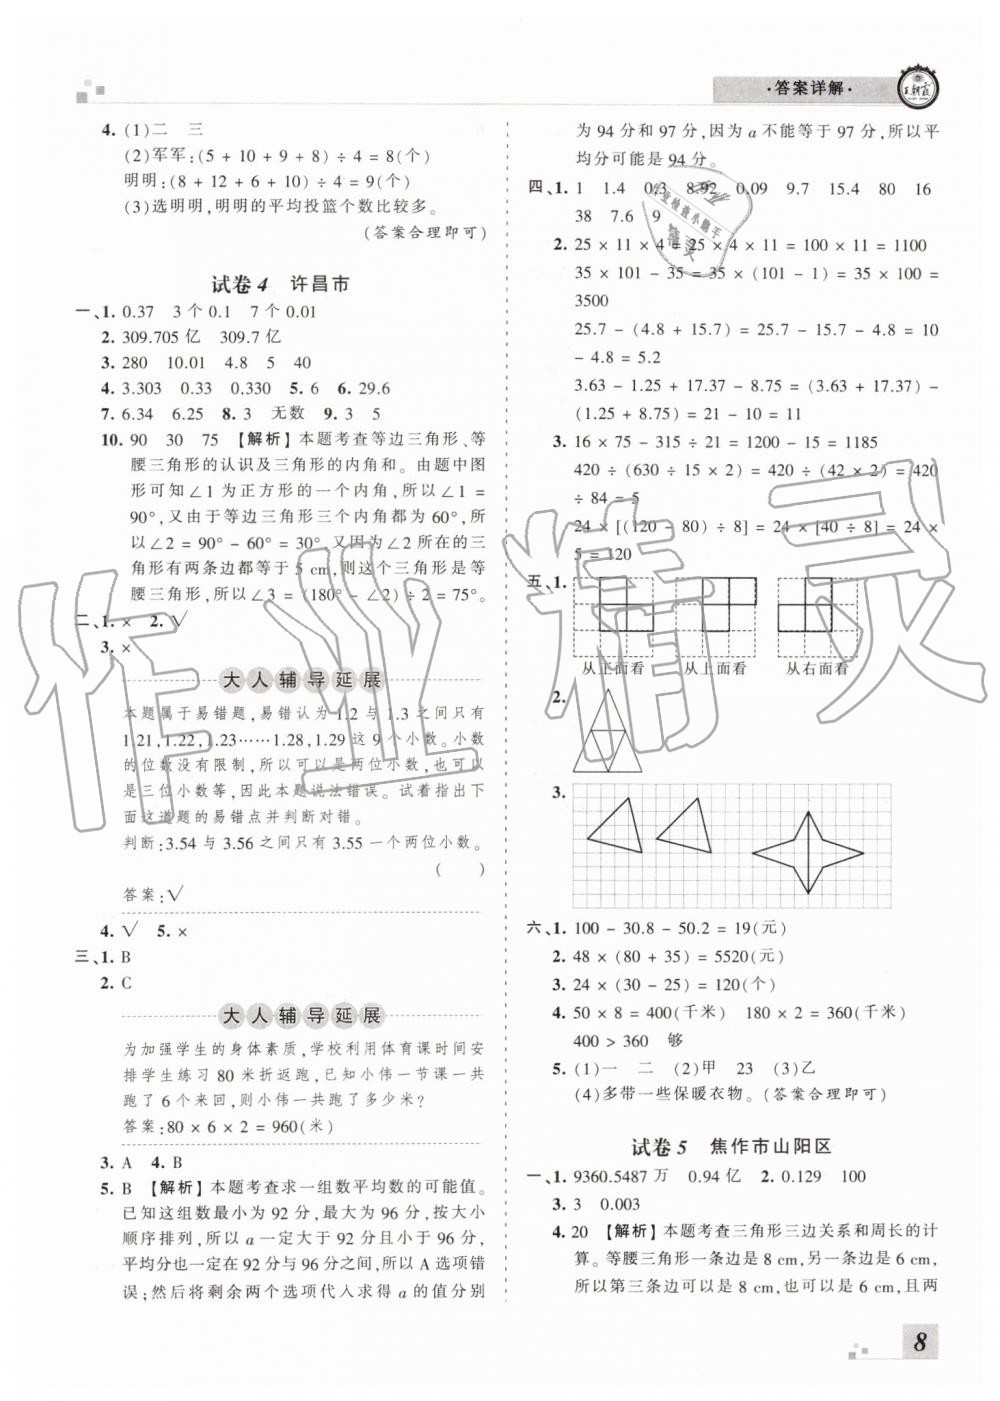 ·答案详解·
王朝霞
4. (1)二 三
(2)军军:(5 + 10 + 9 + 8) ÷ 4 = 8(个)
明明:(8 + 12 + 6 + 10) ÷ 4 = 9(个)
(3)选明明,明明的平均投篮个数比较多。
(答案合理即可)
试卷4 许昌市
一、1. 0.37 3 个 0.1 7 个 0.01
2. 309.705 亿 309.7 亿
3. 280 10.01 4.8 5 40
4. 3.303 0.33 0.330 5. 6 6. 29.6
7. 6.34 6.25 8. 3 无数 9. 3 5
10. 90 30 75 【解析】本题考查等边三角形、等
腰三角形的认识及三角形的内角和。由题中图
形可知∠1 为正方形的一个内角,所以∠1 =
90°,又由于等边三角形三个内角都为 60°,所
以∠2 = 90° - 60° = 30°,又因为∠2 所在的三
角形有两条边都等于 5 cm,则这个三角形是等
腰三角形,所以∠3 = (180° - ∠2) ÷ 2 = 75°。
二、1. × 2. √
3. ×
大人辅导延展
本题属于易错题,易错认为 1.2 与 1.3 之间只有
1.21,1.22,1.23……1.28,1.29 这 9 个小数。小数
的位数没有限制,所以可以是两位小数,也可以
是三位小数等,因此本题说法错误。试着指出下
面这道题的易错点并判断对错。
判断:3.54 与 3.56 之间只有 3.55 一个两位小数。
( )
答案:√
4. √ 5. ×
三、1. B
2. C
大人辅导延展
为加强学生的身体素质,学校利用体育课时间安
排学生练习 80 米折返跑,已知小伟一节课一共
跑了 6 个来回,则小伟一共跑了多少米?
答案:80 × 6 × 2 = 960(米)
3. A 4. B
5. B 【解析】本题考查求一组数平均数的可能值。
已知这组数最小为 92 分,最大为 96 分,按大小
顺序排列,所以 a 一定大于 92 分且小于 96 分,
平均分也一定在 92 分与 96 分之间,所以 A 选项错
误;然后将剩余两个选项代入求得 a 的值分别
为 94 分和 97 分,因为 a 不能等于 97 分,所以平
均分可能是 94 分。
四、1. 1 1.4 0.3 8.92 0.09 9.7 15.4 80 16
38 7.6 9
2. 25 × 11 × 4 = 25 × 4 × 11 = 100 × 11 = 1100
35 × 101 - 35 = 35 × (101 - 1) = 35 × 100 =
3500
25.7 - (4.8 + 15.7) = 25.7 - 15.7 - 4.8 = 10
- 4.8 = 5.2
3.63 - 1.25 + 17.37 - 8.75 = (3.63 + 17.37) -
(1.25 + 8.75) = 21 - 10 = 11
3. 16 × 75 - 315 ÷ 21 = 1200 - 15 = 1185
420 ÷ (630 ÷ 15 × 2) = 420 ÷ (42 × 2) = 420
÷ 84 = 5
24 × [(120 - 80) ÷ 8] = 24 × [40 ÷ 8] = 24 ×
5 = 120
五、1.
从正面看 从上面看 从右面看
2.
3.
六、1. 100 - 30.8 - 50.2 = 19(元)
2. 48 × (80 + 35) = 5520(元)
3. 24 × (30 - 25) = 120(个)
4. 50 × 8 = 400(千米) 180 × 2 = 360(千米)
400 > 360 够
5. (1)一 二 (2)甲 23 (3)乙
(4)多带一些保暖衣物。(答案合理即可)
试卷5 焦作市山阳区
一、1. 9360.5487 万 0.94 亿 2. 0.129 100
3. 3 0.003
4. 20 【解析】本题考查三角形三边关系和周长的计
算。等腰三角形一条边是 8 cm,另一条边是 4 cm,
所以第三条边可以是 8 cm,也可以是 4 cm,且两
8
作业精灵
作业检查小助手
精灵